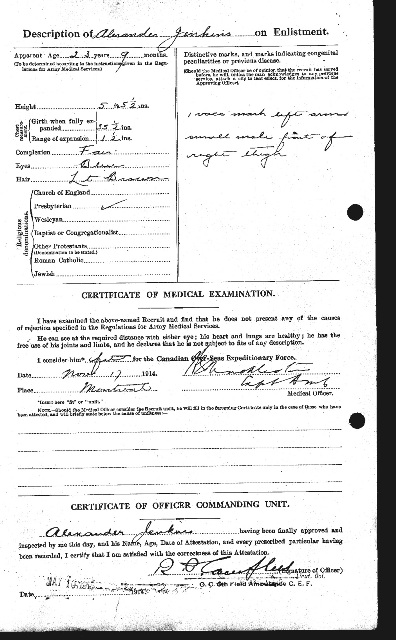 Description of Alexander Jenkins on Enlistment.
Apparent Age 23 years 9 months.
(To be determined according to the instructions given in the Regulations for Army Medical Services.)
Distinctive marks, and marks indicating congenital peculiarities or previous disease.
(Should the Medical Officer be of opinion that the recruit has served before, he will, unless the man acknowledges to any previous service, attach a slip to that effect, for the information of the Approving Officer).
Height 5 ft. 5 ½ ins.
Chest measurement
Girth when fully expanded 35 ½ ins.
Range of expansion 1 ½ ins.
Complexion Fair
Eyes Blue
Hair Lt Brown
1 vacc mark left arm
small mole front of
right thigh
Religious denominations.
Church of England
Presbyterian ✓
Wesleyan
Baptist or Congregationalist
Other Protestants
(Denomination to be stated.)
Roman Catholic
Jewish
CERTIFICATE OF MEDICAL EXAMINATION.
I have examined the above-named Recruit and find that he does not present any of the causes
of rejection specified in the Regulations for Army Medical Services.
He can see at the required distance with either eye; his heart and lungs are healthy; he has the
free use of his joints and limbs, and he declares that he is not subject to fits of any description.
I consider him* fit for the Canadian Over-Seas Expeditionary Force.
Date Nov 17 1914.
Place Montreal
Capt AMC
Medical Officer.
*Insert here "fit" or "unfit."
NOTE.—Should the Medical Officer consider the Recruit unfit, he will fill in the foregoing Certificate only in the case of those who have
been attested, and will briefly state below the cause of unfitness:—
CERTIFICATE OF OFFICER COMMANDING UNIT.
Alexander Jenkins having been finally approved and
inspected by me this day, and his Name, Age, Date of Attestation, and every prescribed particular having
been recorded, I certify that I am satisfied with the correctness of this Attestation.
(Signature of Officer)
O. C. 6th Field Ambulance C. E. F.
Date